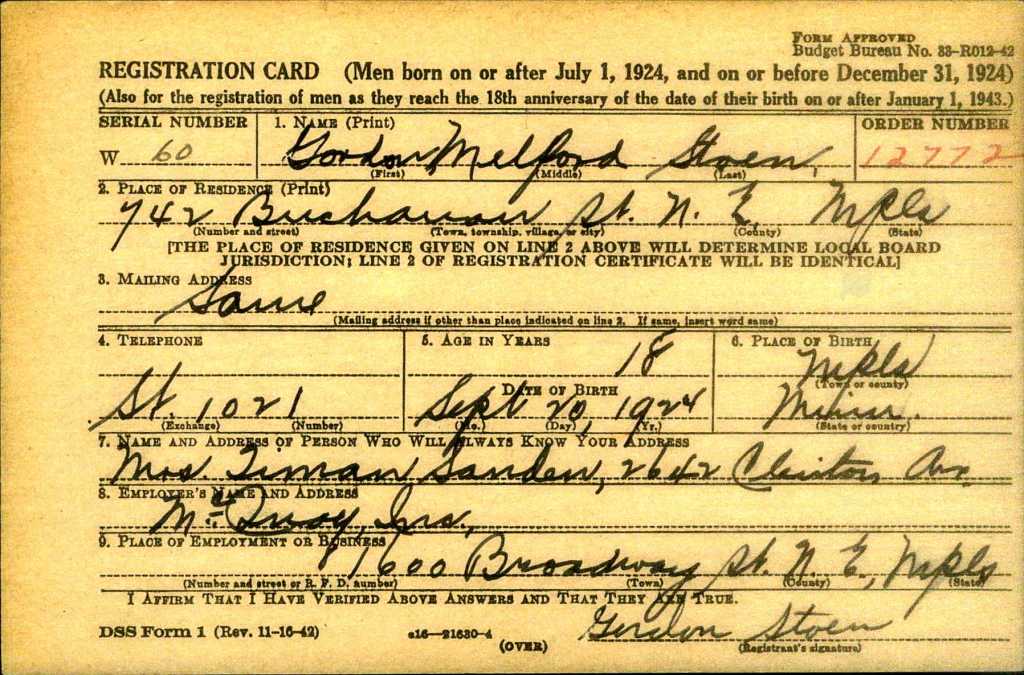 FORM APPROVED
Budget Bureau No. 33-R012-42
REGISTRATION CARD (Men born on or after July 1, 1924, and on or before December 31, 1924)
(Also for the registration of men as they reach the 18th anniversary of the date of their birth on or after January 1, 1943.)
SERIAL NUMBER 1. NAME (Print) ORDER NUMBER
W 60 Gordon Melford Stoen, 12772
(First) (Middle) (Last)
2. PLACE OF RESIDENCE (Print)
742 Buchanan St. N. E. Mpls
(Number and street) (Town, township, village, or city) (County) (State)
[THE PLACE OF RESIDENCE GIVEN ON LINE 2 ABOVE WILL DETERMINE LOCAL BOARD
JURISDICTION; LINE 2 OF REGISTRATION CERTIFICATE WILL BE IDENTICAL]
3. MAILING ADDRESS
Same
(Mailing address if other than place indicated on line 2. If same, insert word same)
4. TELEPHONE 5. AGE IN YEARS 6. PLACE OF BIRTH
18 Mpls
DATE OF BIRTH (Town or county)
St. 1021 Sept 20, 1924 Minn.
(Exchange) (Number) (Mo.) (Day) (Yr.) (State or country)
7. NAME AND ADDRESS OF PERSON WHO WILL ALWAYS KNOW YOUR ADDRESS
Mrs. Timan Sanden, 2642 Clinton Ave.
8. EMPLOYER'S NAME AND ADDRESS
Mc Quay, Inc.
9. PLACE OF EMPLOYMENT OR BUSINESS
1600 Broadway St. N. E., Mpls
(Number and street or R. F. D. number) (Town) (County) (State)
I AFFIRM THAT I HAVE VERIFIED ABOVE ANSWERS AND THAT THEY ARE TRUE.
DSS Form 1 (Rev. 11-16-42) 16-21630-4 Gordon Stoen
(OVER) (Registrant's signature)